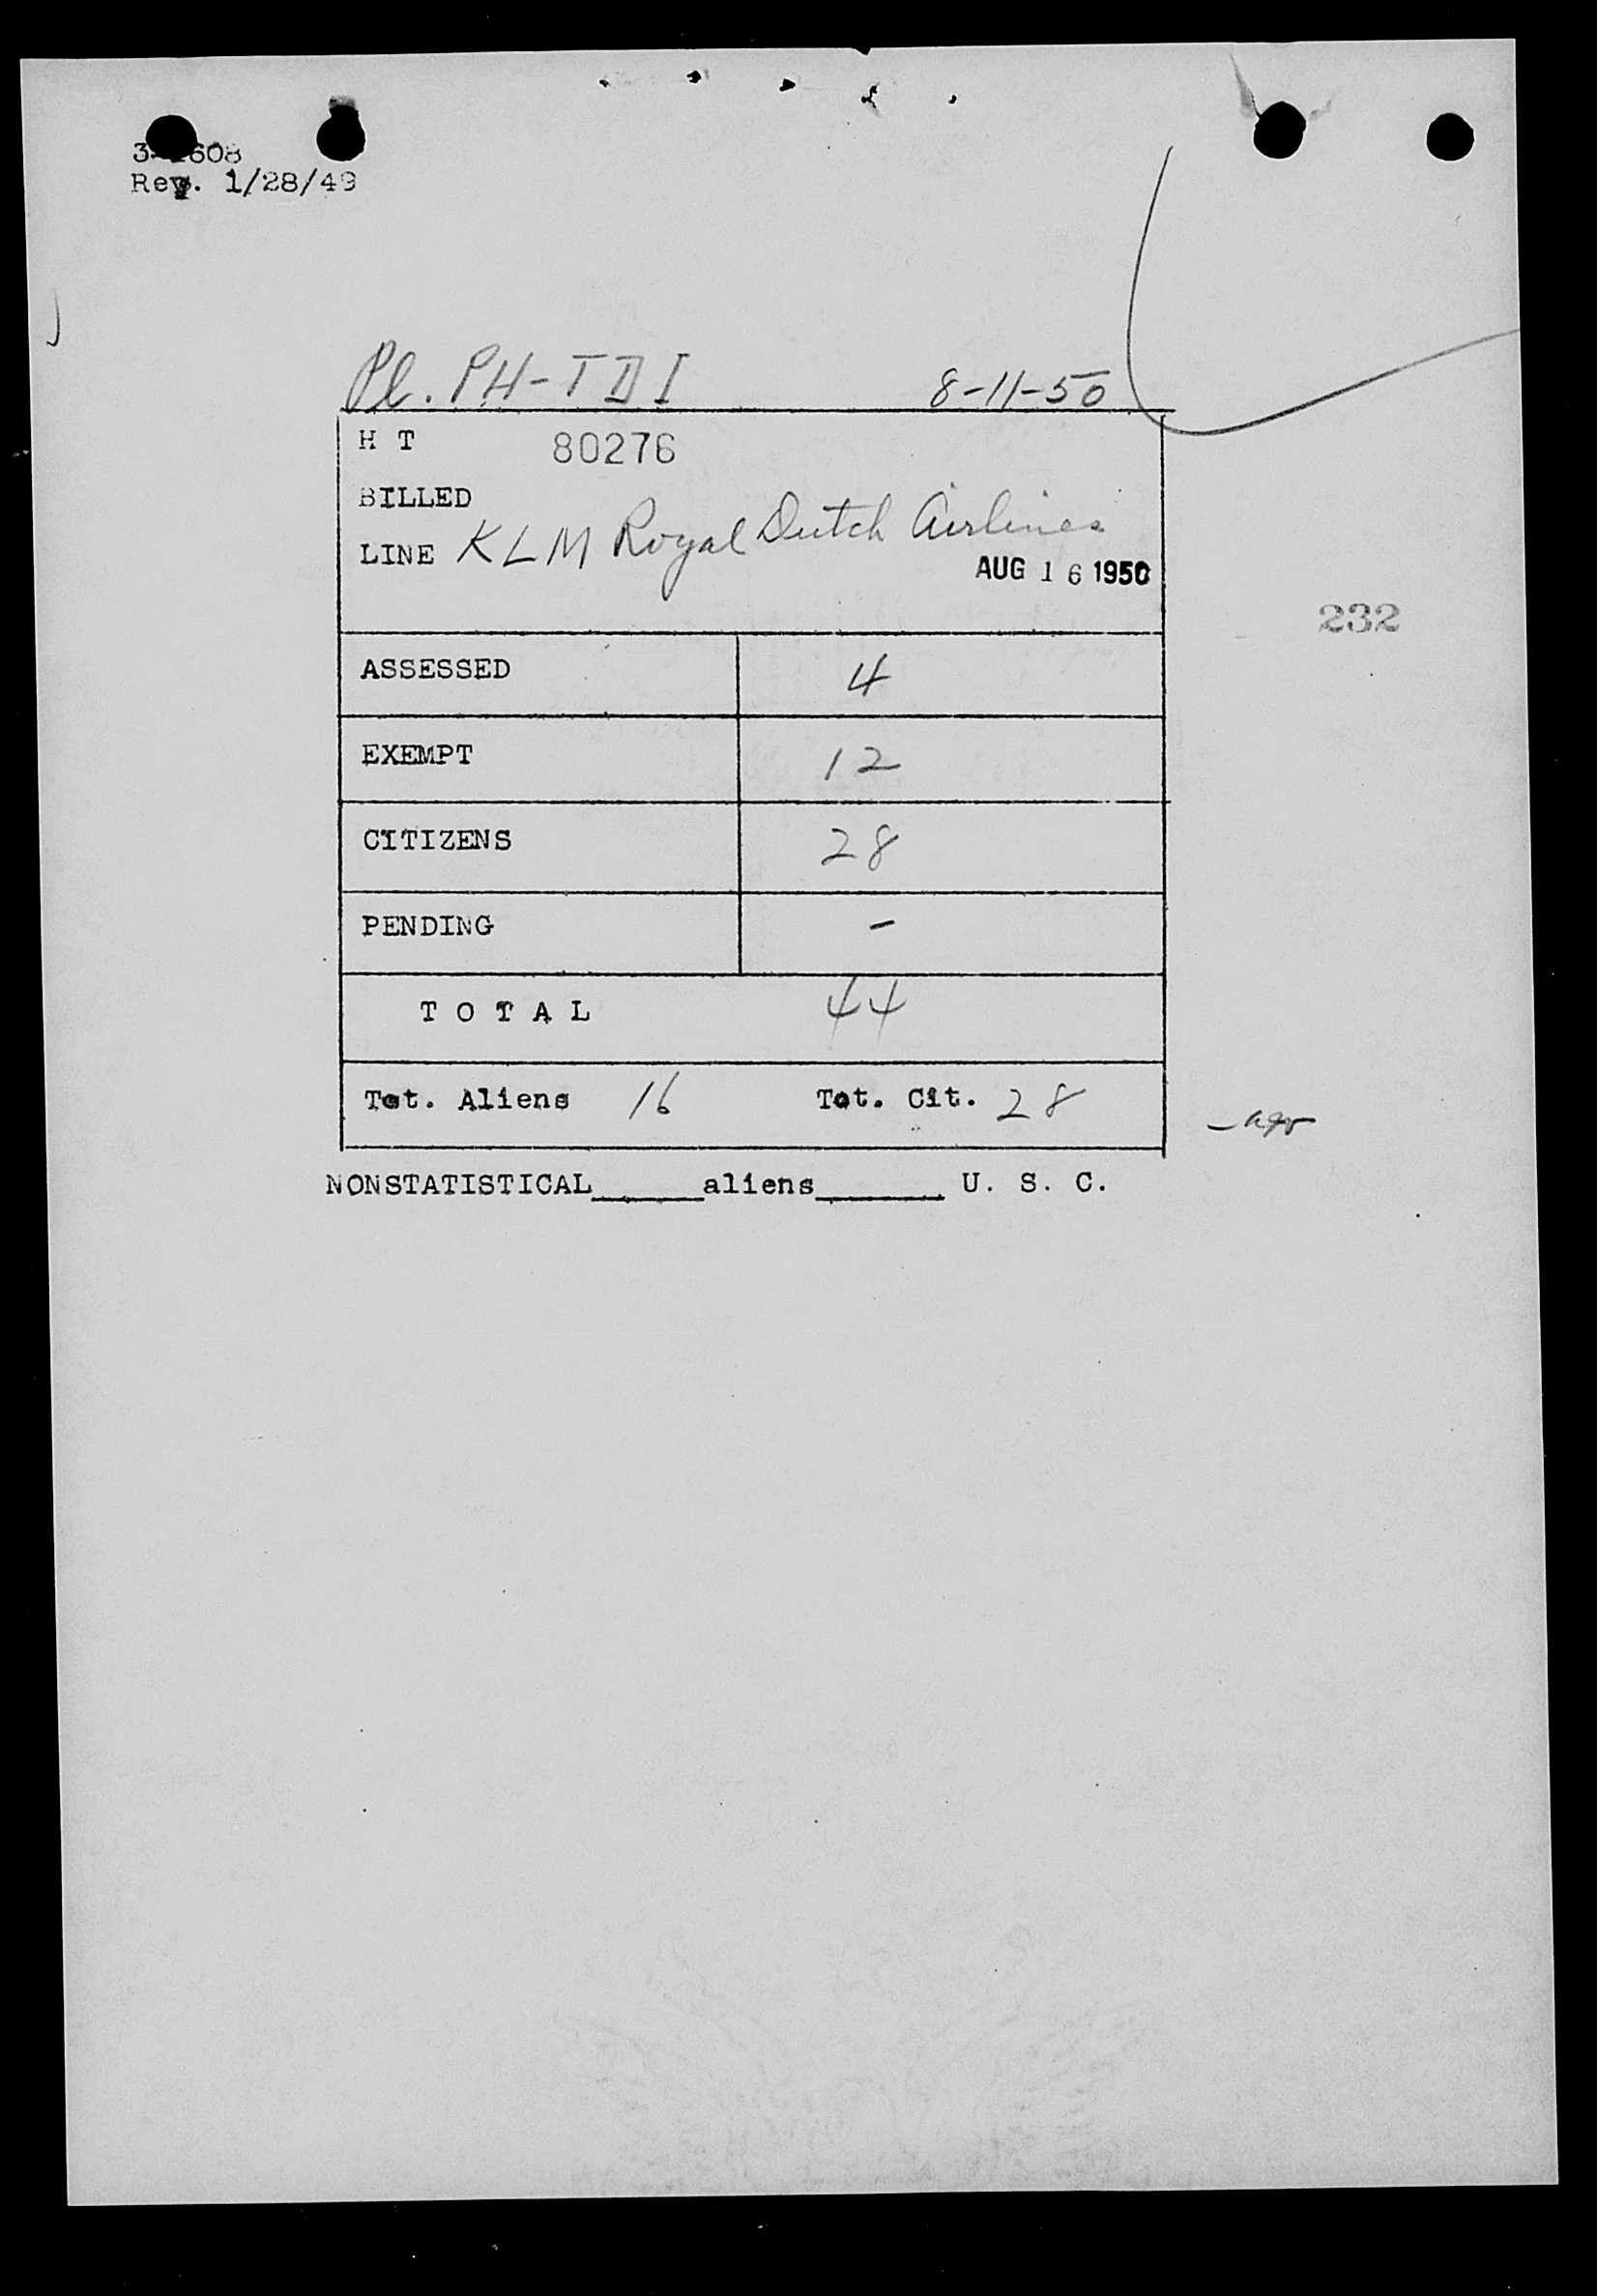 Rev. 1/28/49
Pl. PH-TDI 8-11-50
H T 80276
BILLED
LINE KLM Royal Dutch Airlines
AUG 16 1950
232
ASSESSED 4
EXEMPT 12
CITIZENS 28
PENDING -
T O T A L 44
Tot. Aliens 16 Tot. Cit. 28
NONSTATISTICAL______aliens_______ U. S. C.